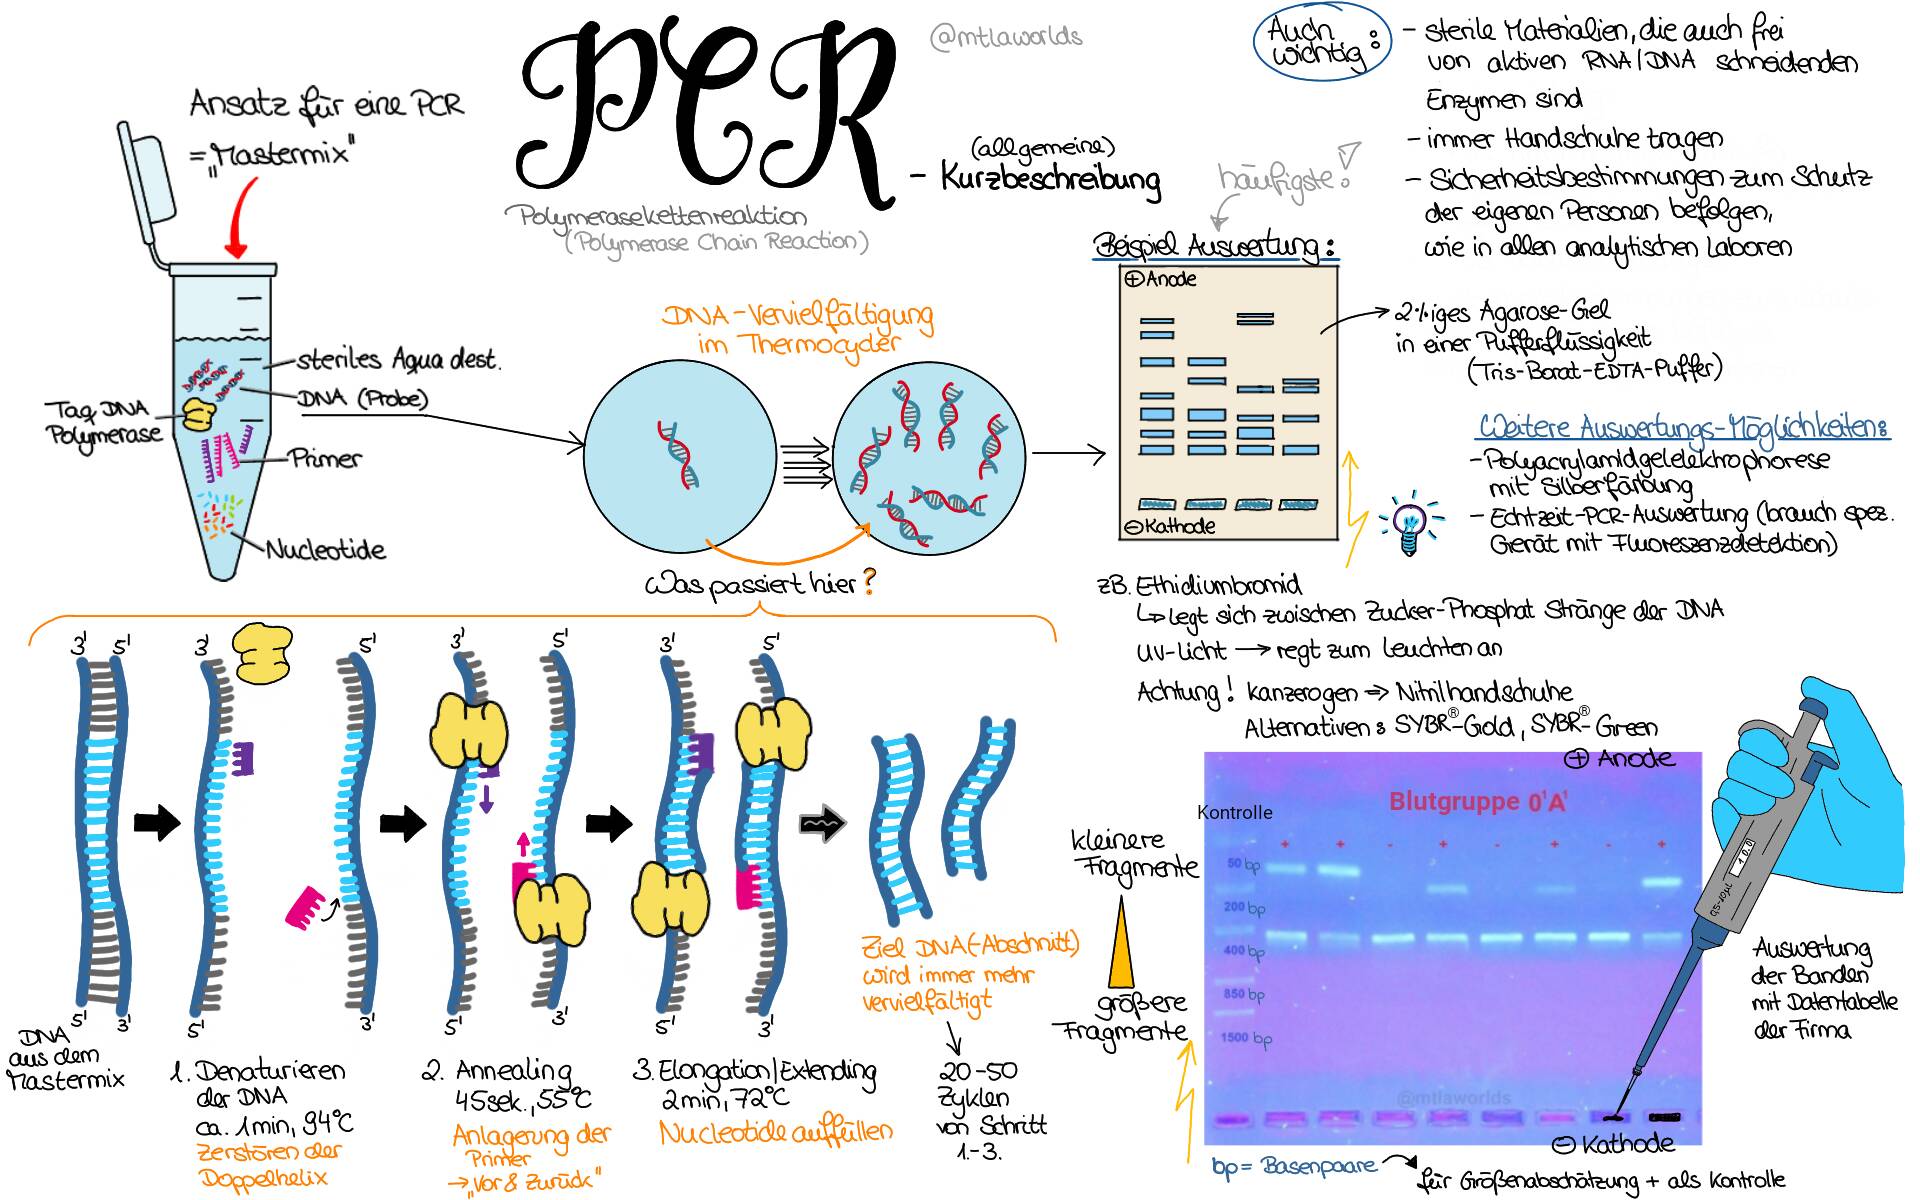 PCR
@mtlaworlds
- (allgemeine)
Kurzbeschreibung
Polymerasekettenreaktion
(Polymerase Chain Reaction)
Auch wichtig:
- sterile Materialien, die auch frei
von aktiven RNA/DNA schneidenden
Enzymen sind
- immer Handschuhe tragen
- Sicherheitsbestimmungen zum Schutz
der eigenen Personen befolgen,
wie in allen analytischen Laboren
Ansatz für eine PCR
= „Mastermix"
steriles Aqua dest.
DNA (Probe)
Taq DNA
Polymerase
Primer
Nucleotide
DNA-Vervielfältigung
im Thermocycler
Was passiert hier?
häufigste!
Beispiel Auswertung:
+ Anode
- Kathode
2%iges Agarose-Gel
in einer Pufferflüssigkeit
(Tris-Borat-EDTA-Puffer)
Weitere Auswertungs-Möglichkeiten:
- Polyacrylamidgelelektrophorese
mit Silberfärbung
- Echtzeit-PCR-Auswertung (brauch spez.
Gerät mit Fluoreszenzdetektion)
zB. Ethidiumbromid
↳ legt sich zwischen Zucker-Phosphat Stränge der DNA
UV-Licht → regt zum Leuchten an
Achtung! Kanzerogen ⇒ Nitrilhandschuhe
Alternativen: SYBR®-Gold, SYBR®-Green
3' 5'
5' 3'
DNA
aus dem
Mastermix
3' 5'
5' 3'
1. Denaturieren
der DNA
ca. 1min, 94°C
Zerstören der
Doppelhelix
3' 5'
5' 3'
2. Annealing
45sek., 55°C
Anlagerung der
Primer
→ „Vor & Zurück"
3' 5'
5' 3'
3. Elongation/Extending
2min, 72°C
Nucleotide auffüllen
Ziel DNA(-Abschnitt)
wird immer mehr
vervielfältigt
20-50
Zyklen
von Schritt
1.-3.
+ Anode
Kontrolle
Blutgruppe 0¹A¹
+ + - + - + - +
kleinere
Fragmente
größere
Fragmente
50 bp
200 bp
400 bp
850 bp
1500 bp
@mtlaworlds
- Kathode
bp = Basenpaare
für Größenabschätzung + als Kontrolle
100
0,5-10µL
Auswertung
der Banden
mit Datentabelle
der Firma